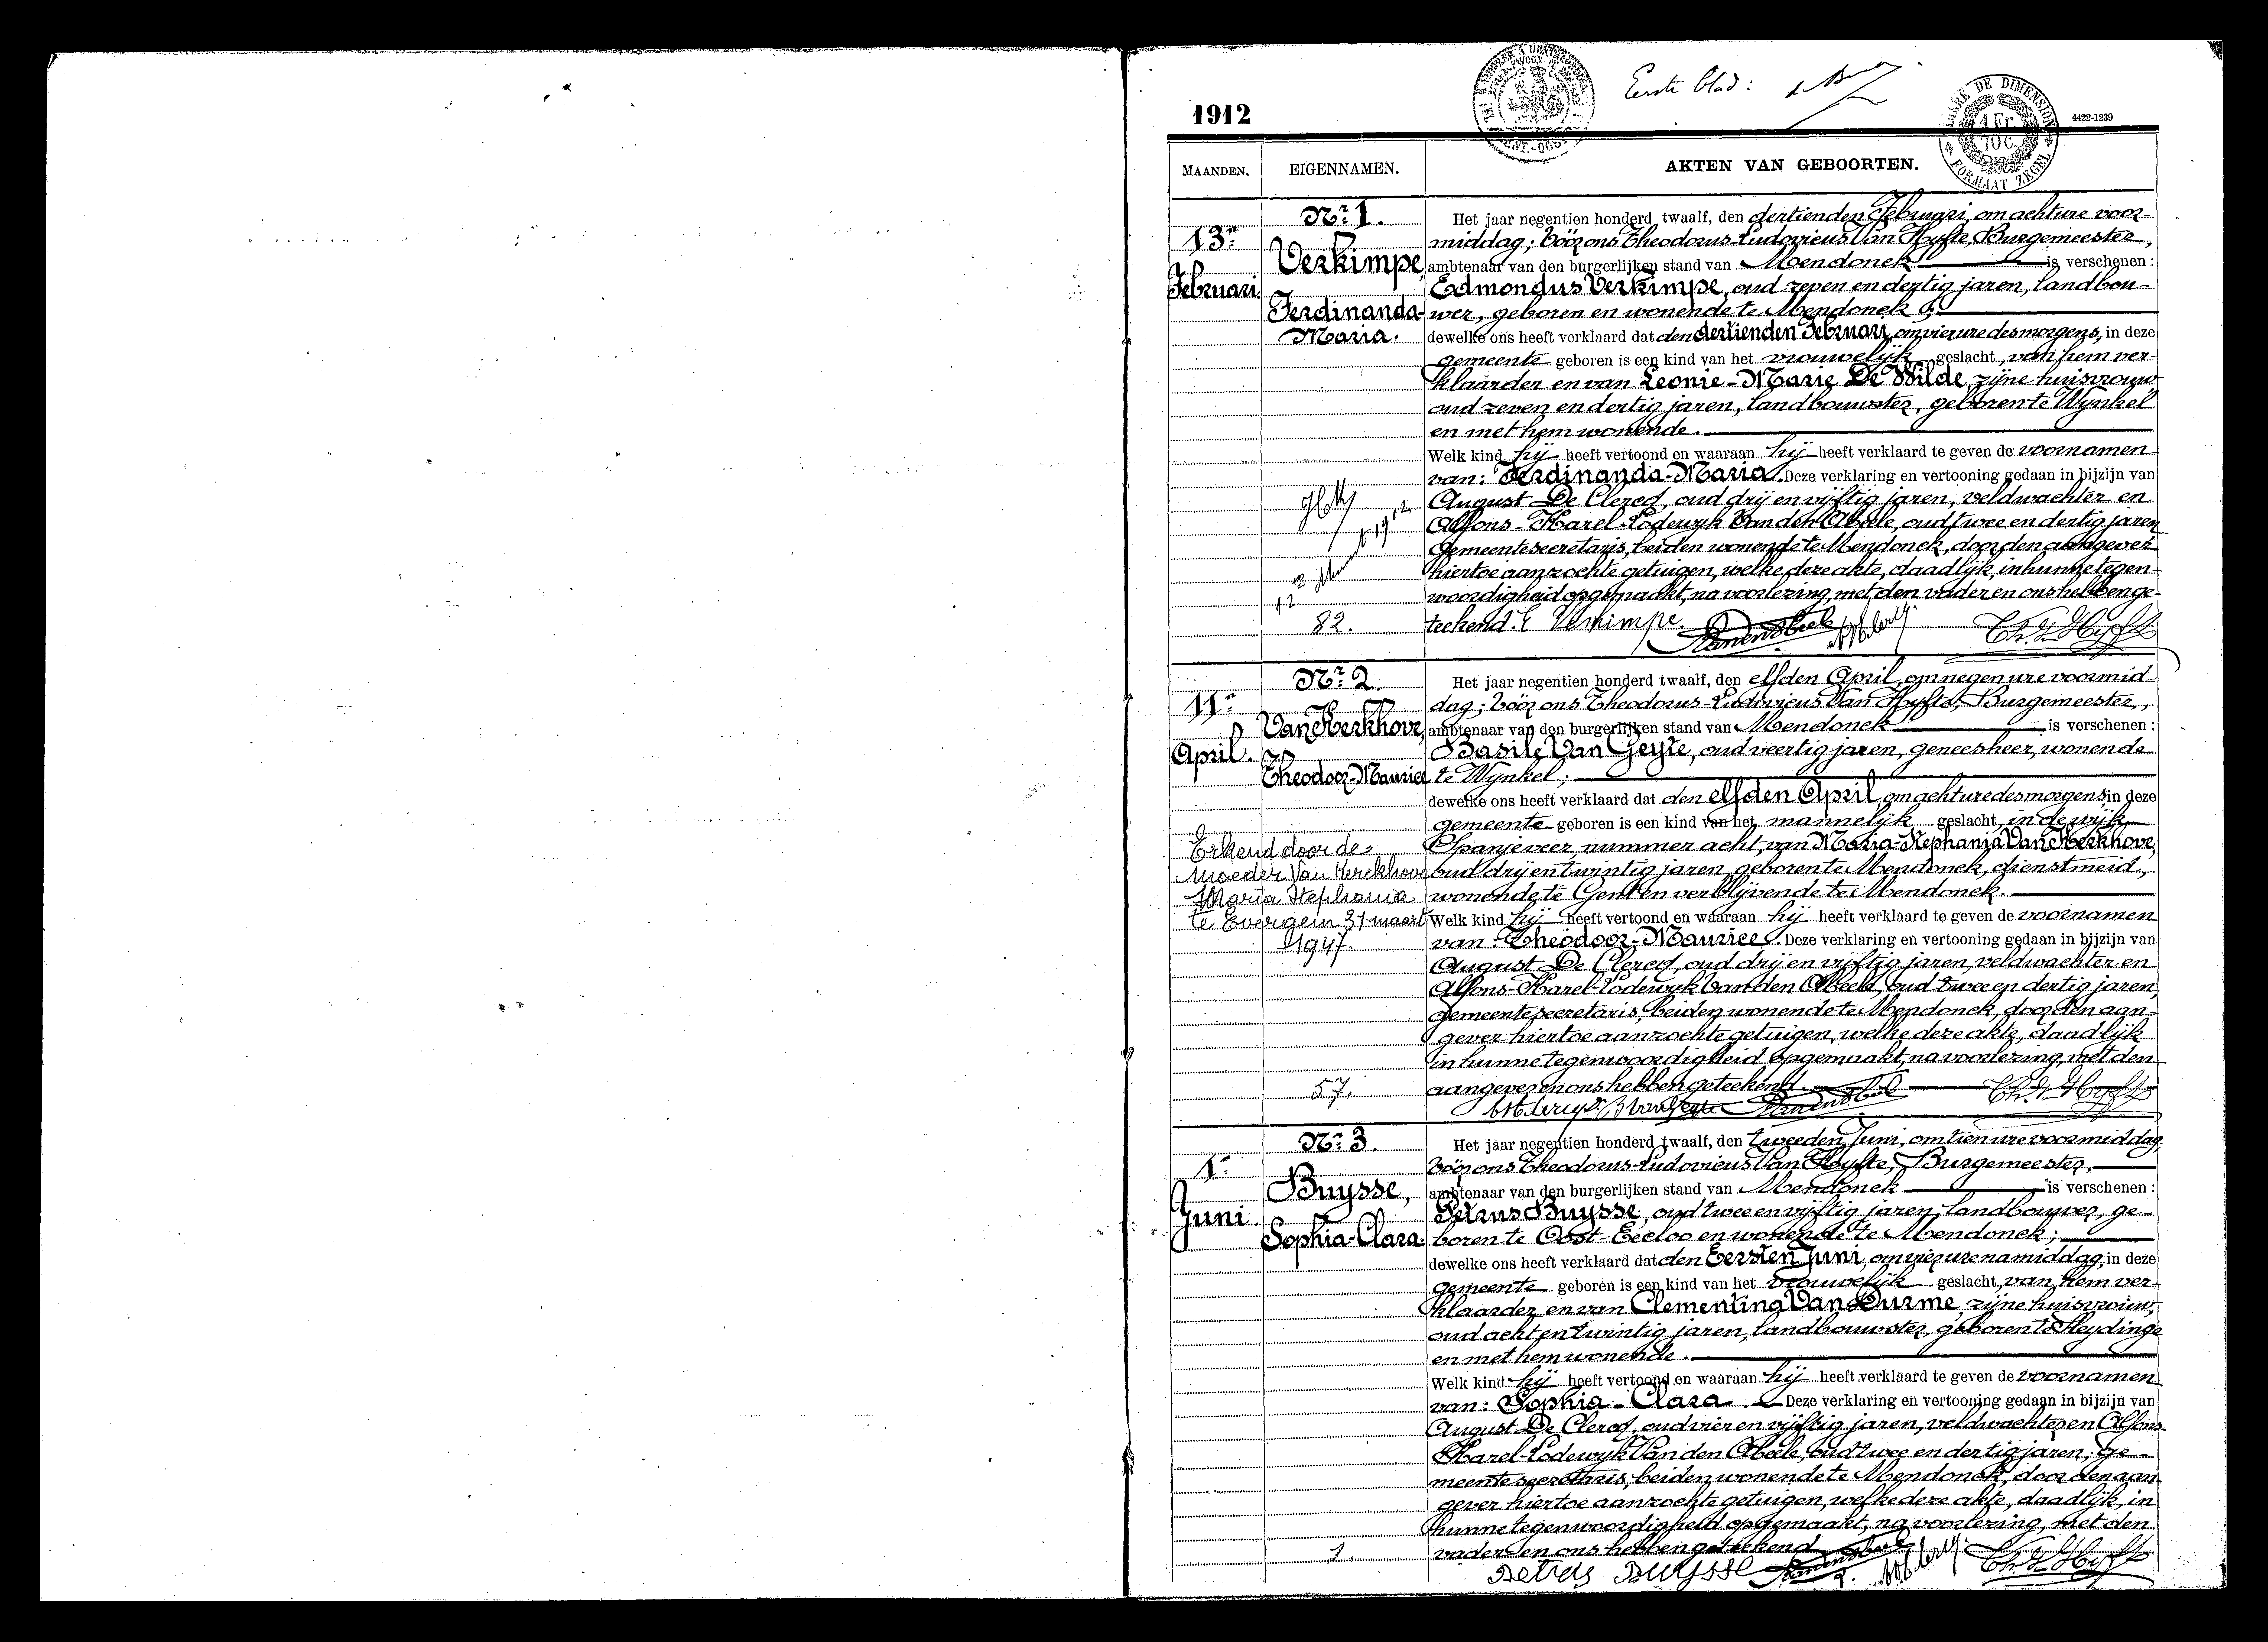 1912
Eerste blad:
4422-1239
TIMBRE DE DIMENSION
1 Fr.
70 C.
FORMAAT ZEGEL
MAANDEN.
EIGENNAMEN.
AKTEN VAN GEBOORTEN.
Nr. 1.
13n
Februari
Verkimpe,
Ferdinanda-
Maria.
82.
Het jaar negentien honderd twaalf, den dertienden Februari, om acht ure voor-
middag; vóór ons Theodorus-Ludovicus Van Hyfte, Burgemeester,
ambtenaar van den burgerlijken stand van Mendonck is verschenen:
Edmondus Verkimpe, oud zeven en dertig jaren, landbou-
wer, geboren en wonende te Mendonck;
dewelke ons heeft verklaard dat den dertienden Februari, om vier ure des morgens, in deze
gemeente geboren is een kind van het vrouwelijk geslacht, van hem ver-
klaarder en van Leonie-Marie De Wilde, zijne huisvrouw
oud zeven en dertig jaren, landbouwster, geboren te Wynkel
en met hem wonende.
Welk kind hij heeft vertoond en waaraan hij heeft verklaard te geven de voornamen
van: Ferdinanda-Maria. Deze verklaring en vertooning gedaan in bijzijn van
August De Clercq, oud drij en vijftig jaren, veldwachter en
Alfons-Karel-Lodewyk Van den Abeele, oud twee en dertig jaren
gemeentesecretaris, beiden wonende te Mendonck, door den aangever
hiertoe aanzochte getuigen, welke deze akte, daadlijk, in hunne tegen-
woordigheid opgemaakt, na voorlezing, met den vader en ons hebben ge-
teekend. E Verkimpe.
Nr. 2.
11n
April.
Van Kerkhove,
Theodoor-Maurice
Erkend door de
moeder Van Kerckhove
Maria Stephania
te Evergem 31 maart
1947.
57.
Het jaar negentien honderd twaalf, den elfden April, om negen ure voormid-
dag; vóór ons Theodorus-Ludovicus Van Hyfte, Burgemeester,
ambtenaar van den burgerlijken stand van Mendonck is verschenen:
Basile Van Geyte, oud veertig jaren, geneesheer, wonende
te Wynkel;
dewelke ons heeft verklaard dat den elfden April, om acht ure des morgens, in deze
gemeente geboren is een kind van het mannelijk geslacht, in de wijk
Spanjeveer, nummer acht, van Maria-Stephania Van Kerkhove,
oud drij en twintig jaren, geboren te Mendonck, dienstmeid,
wonende te Gent en verblijvende te Mendonck.
Welk kind hij heeft vertoond en waaraan hij heeft verklaard te geven de voornamen
van: Theodoor-Maurice. Deze verklaring en vertooning gedaan in bijzijn van
August De Clercq, oud drij en vijftig jaren, veldwachter en
Alfons-Karel-Lodewyk Van den Abeele, oud twee en dertig jaren,
gemeentesecretaris, beiden wonende te Mendonck, door den aan-
gever hiertoe aanzochte getuigen, welke deze akte, daadlijk
in hunne tegenwoordigheid opgemaakt, na voorlezing, met den
aangever en ons hebben geteekend.
Nr. 3.
1n
Juni
Buysse,
Sophia-Clara.
1.
Het jaar negentien honderd twaalf, den tweeden Juni, om tien ure voormiddag,
vóór ons Theodorus-Ludovicus Van Hyfte, Burgemeester,
ambtenaar van den burgerlijken stand van Mendonck is verschenen:
Petrus Buysse, oud twee en vijftig jaren, landbouwer, ge-
boren te Oost-Eecloo en wonende te Mendonck;
dewelke ons heeft verklaard dat den Eersten Juni, om vier ure namiddag, in deze
gemeente geboren is een kind van het vrouwelijk geslacht, van hem ver-
klaarder en van Clementina Van Durme, zijne huisvrouw,
oud acht en twintig jaren, landbouwster, geboren te Sleydinge
en met hem wonende.
Welk kind hij heeft vertoond en waaraan hij heeft verklaard te geven de voornamen
van: Sophia-Clara. Deze verklaring en vertooning gedaan in bijzijn van
August De Clercq, oud vier en vijftig jaren, veldwachter en Alfons-
Karel-Lodewyk Van den Abeele, oud twee en dertig jaren, ge-
meentesecretaris, beiden wonende te Mendonck, door den aan-
gever hiertoe aanzochte getuigen, welke deze akte, daadlijk, in
hunne tegenwoordigheid opgemaakt, na voorlezing, met den
vader en ons hebben geteekend
Petrus Buysse